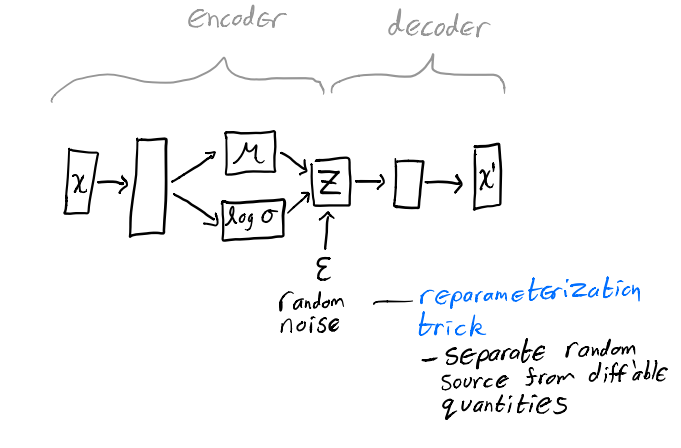 encoder
decoder
x
μ
log σ
z
x'
ε
random
noise
— reparameterization
trick
- separate random
source from diff'able
quantities